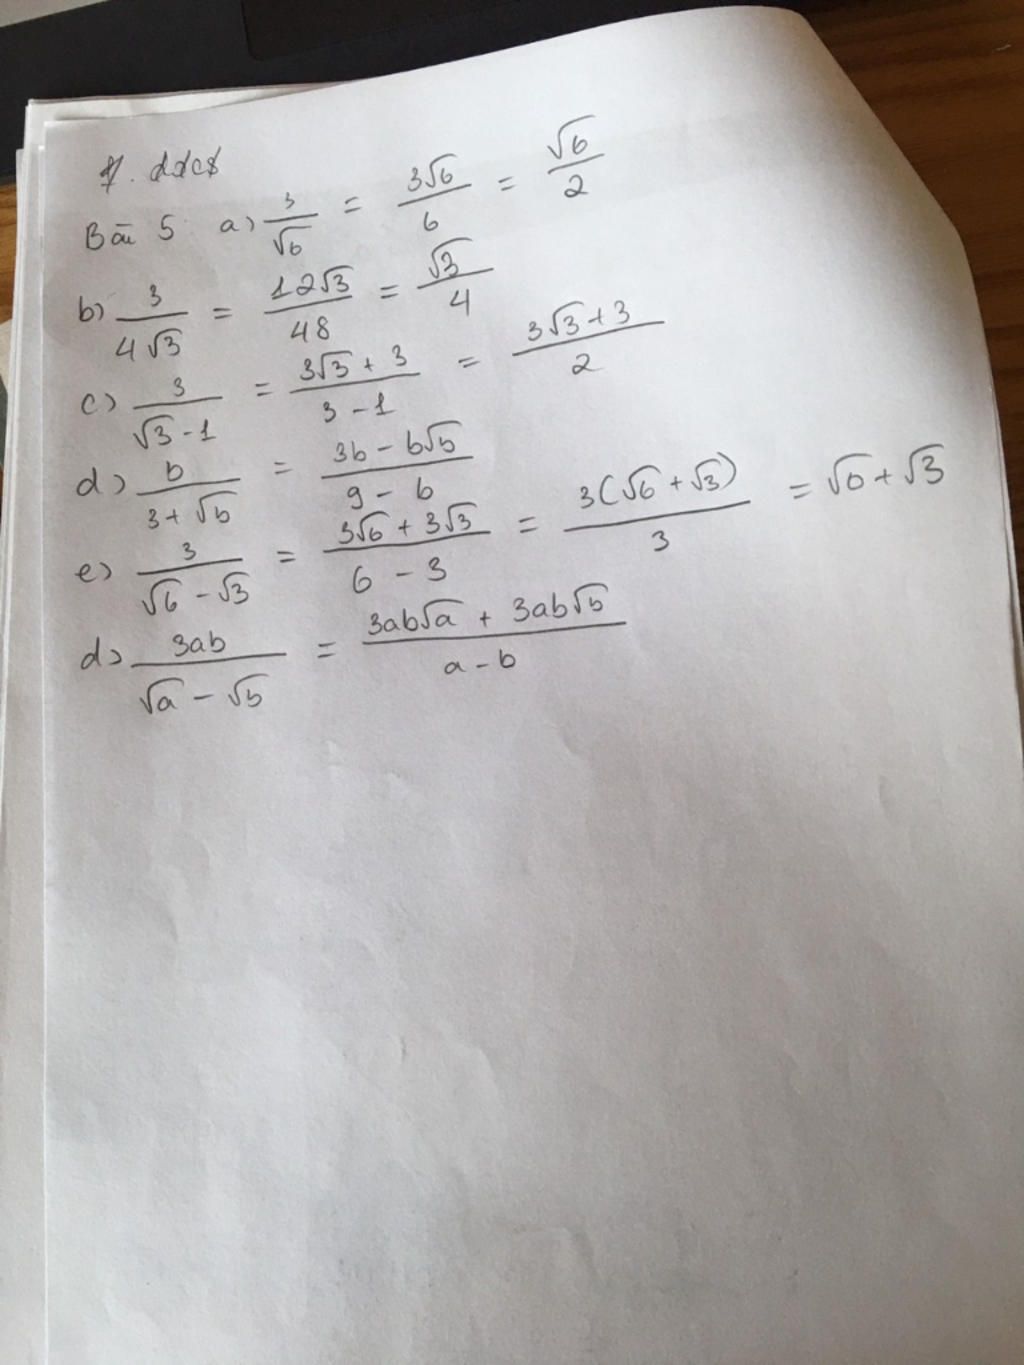 Bài 5 a) 3/√6 = 3√6/6 = √6/2
b) 3/(4√3) = 12√3/48 = √3/4
c) 3/(√3-1) = (3√3+3)/(3-1) = (3√3+3)/2
d) b/(3+√b) = (3b-b√b)/(9-b)
e) 3/(√6-√3) = (3√6+3√3)/(6-3) = 3(√6+√3)/3 = √6+√3
d) 3ab/(√a-√b) = (3ab√a+3ab√b)/(a-b)